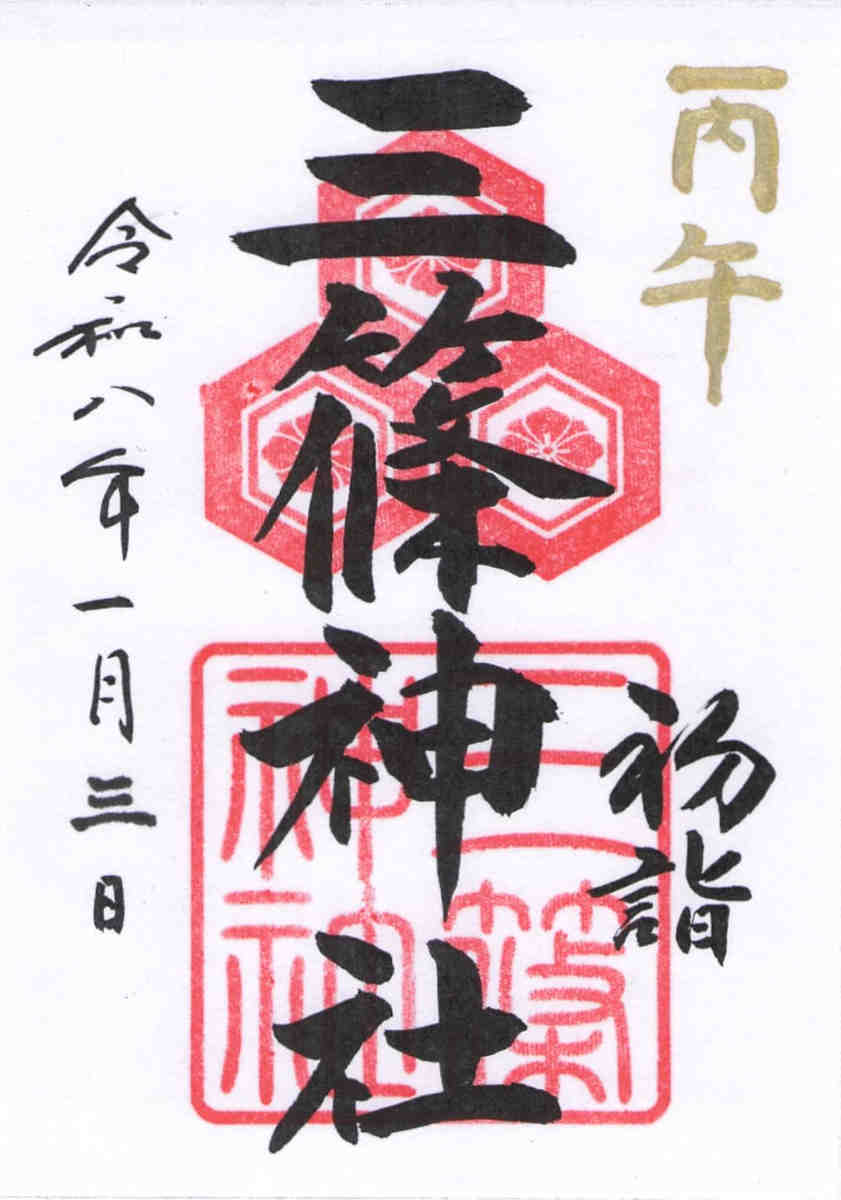 丙午
初詣
三篠神社
三篠神社
令和八年一月三日